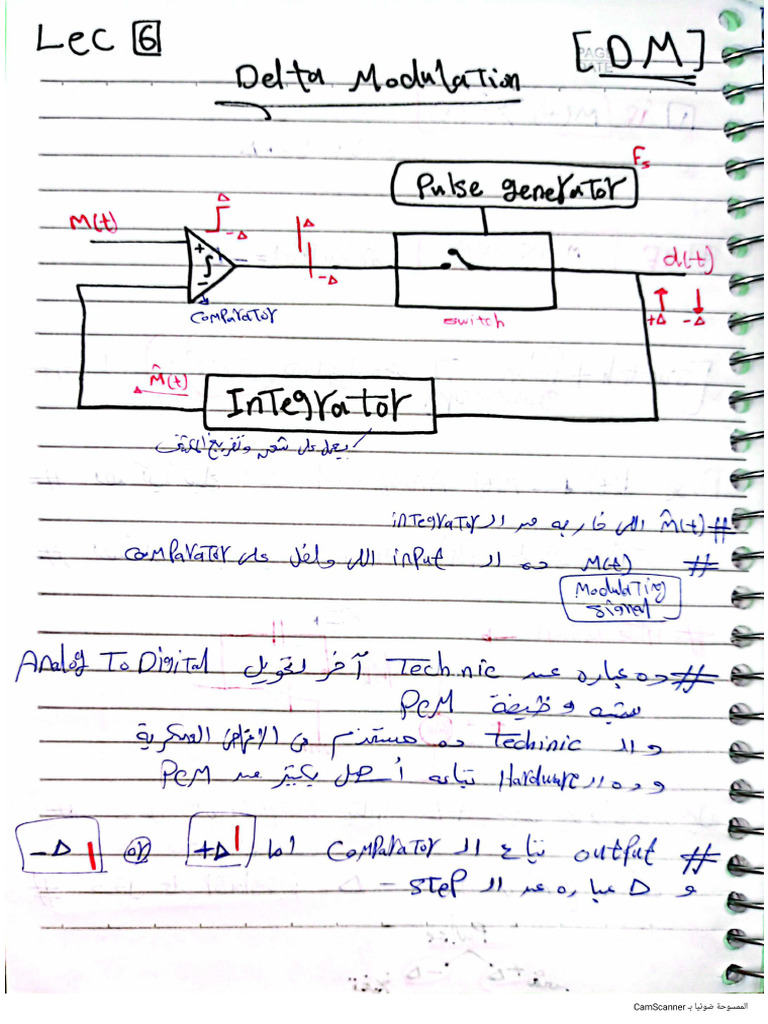 Lec 6
[DM]
PAGE
DATE
Delta Modulation
Fs
Pulse generator
M(t)
Δ
-Δ
Δ
-Δ
+
-
d(t)
+Δ -Δ
comparator
switch
M̂(t)
Integrator
يعمل على شحن وتفريغ المكثف
# M̂(t) اللى خارجه من الـ integrator
# M(t) ده الـ input اللى داخل على comparator
Modulating
signal
# ده عباره عن Technic آخر لتحويل Analog To Digital
شبه وظيفة PCM
والـ Techinic ده مستخدم فى الاغراض العسكرية
وده الـ Hardware بتاعه أسهل بكتير من PCM
# output بتاع الـ comparator اما +Δ or -Δ
و Δ عباره عن الـ step -
الممسوحة ضوئيا بـ CamScanner